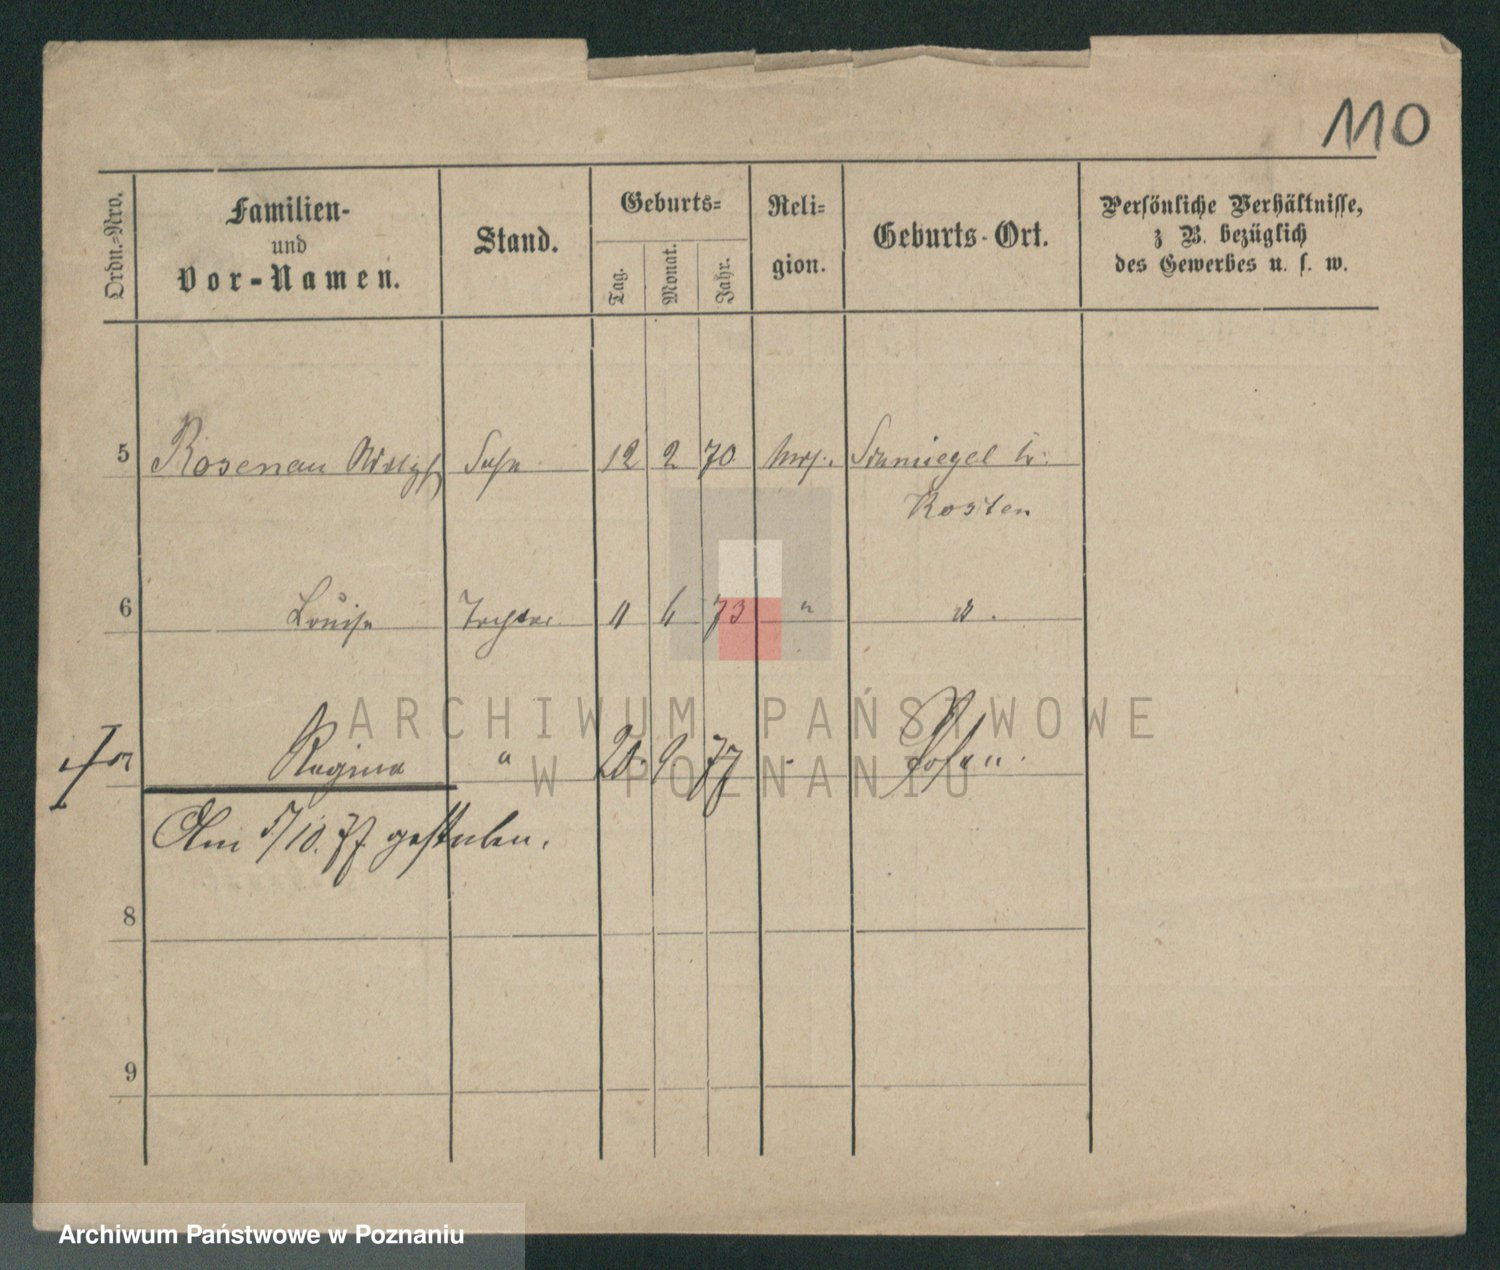 110
Ordn.-Nro.
Familien-
und
Vor-Namen.
Stand.
Geburts-
Tag.
Monat.
Jahr.
Reli-
gion.
Geburts-Ort.
Persönliche Verhältnisse,
z B. bezüglich
des Gewerbes u. s. w.
5 Rosenau Adolph Sohn 12 2 70 mos. Schmiegel Kr.
Kosten
6 Louise Tochter 11 6 73 " "
Regina " 20. 9. 77 - Posen.
Am 5/10. 77 gestorben.
8
9
ARCHIWUM PAŃSTWOWE
W POZNANIU
Archiwum Państwowe w Poznaniu